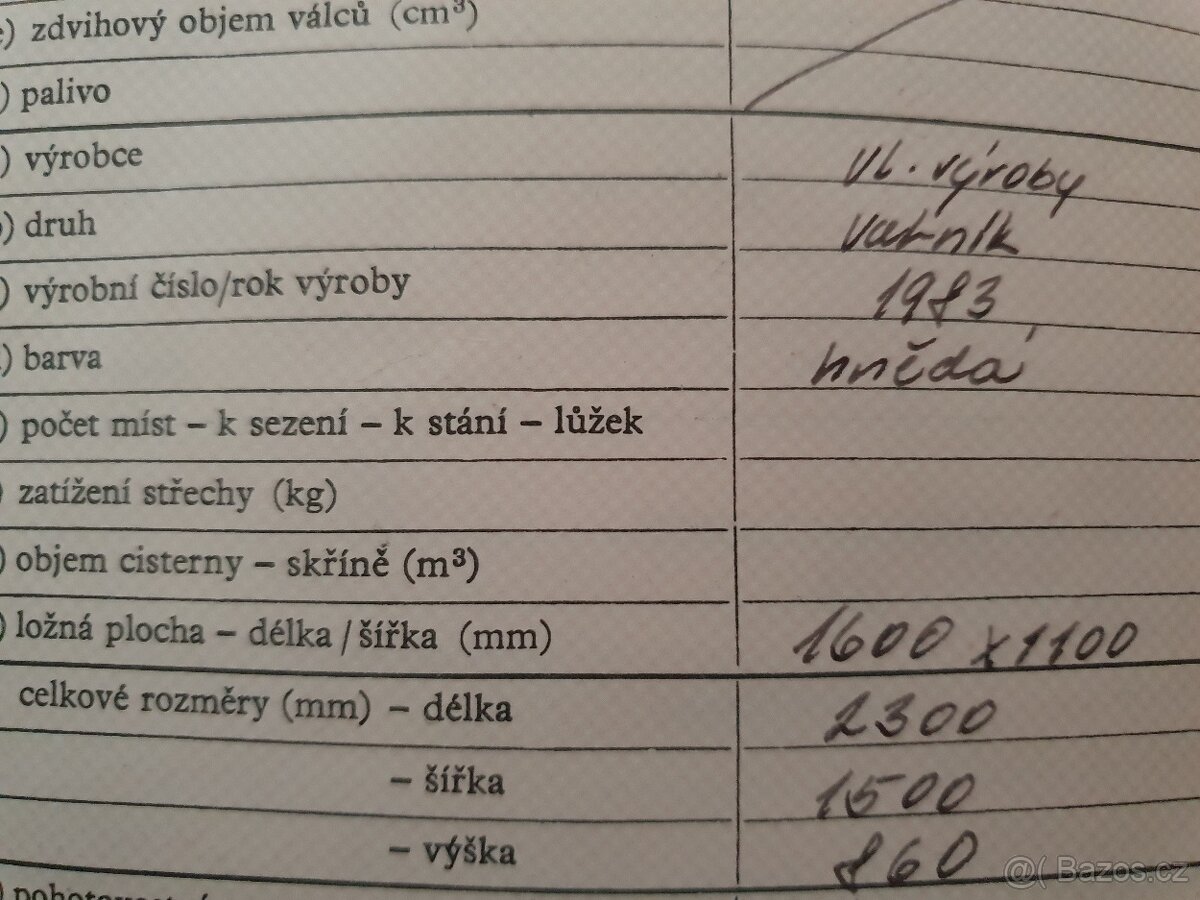 ) zdvihový objem válců (cm³)
) palivo
) výrobce vl. výroby
) druh
) výrobní číslo/rok výroby 1983
) barva hnědá
) počet míst – k sezení – k stání – lůžek
) zatížení střechy (kg)
) objem cisterny – skříně (m³)
) ložná plocha – délka / šířka (mm) 1600 x 1100
celkové rozměry (mm) – délka 2300
– šířka 1500
– výška 860
@( Bazos.cz